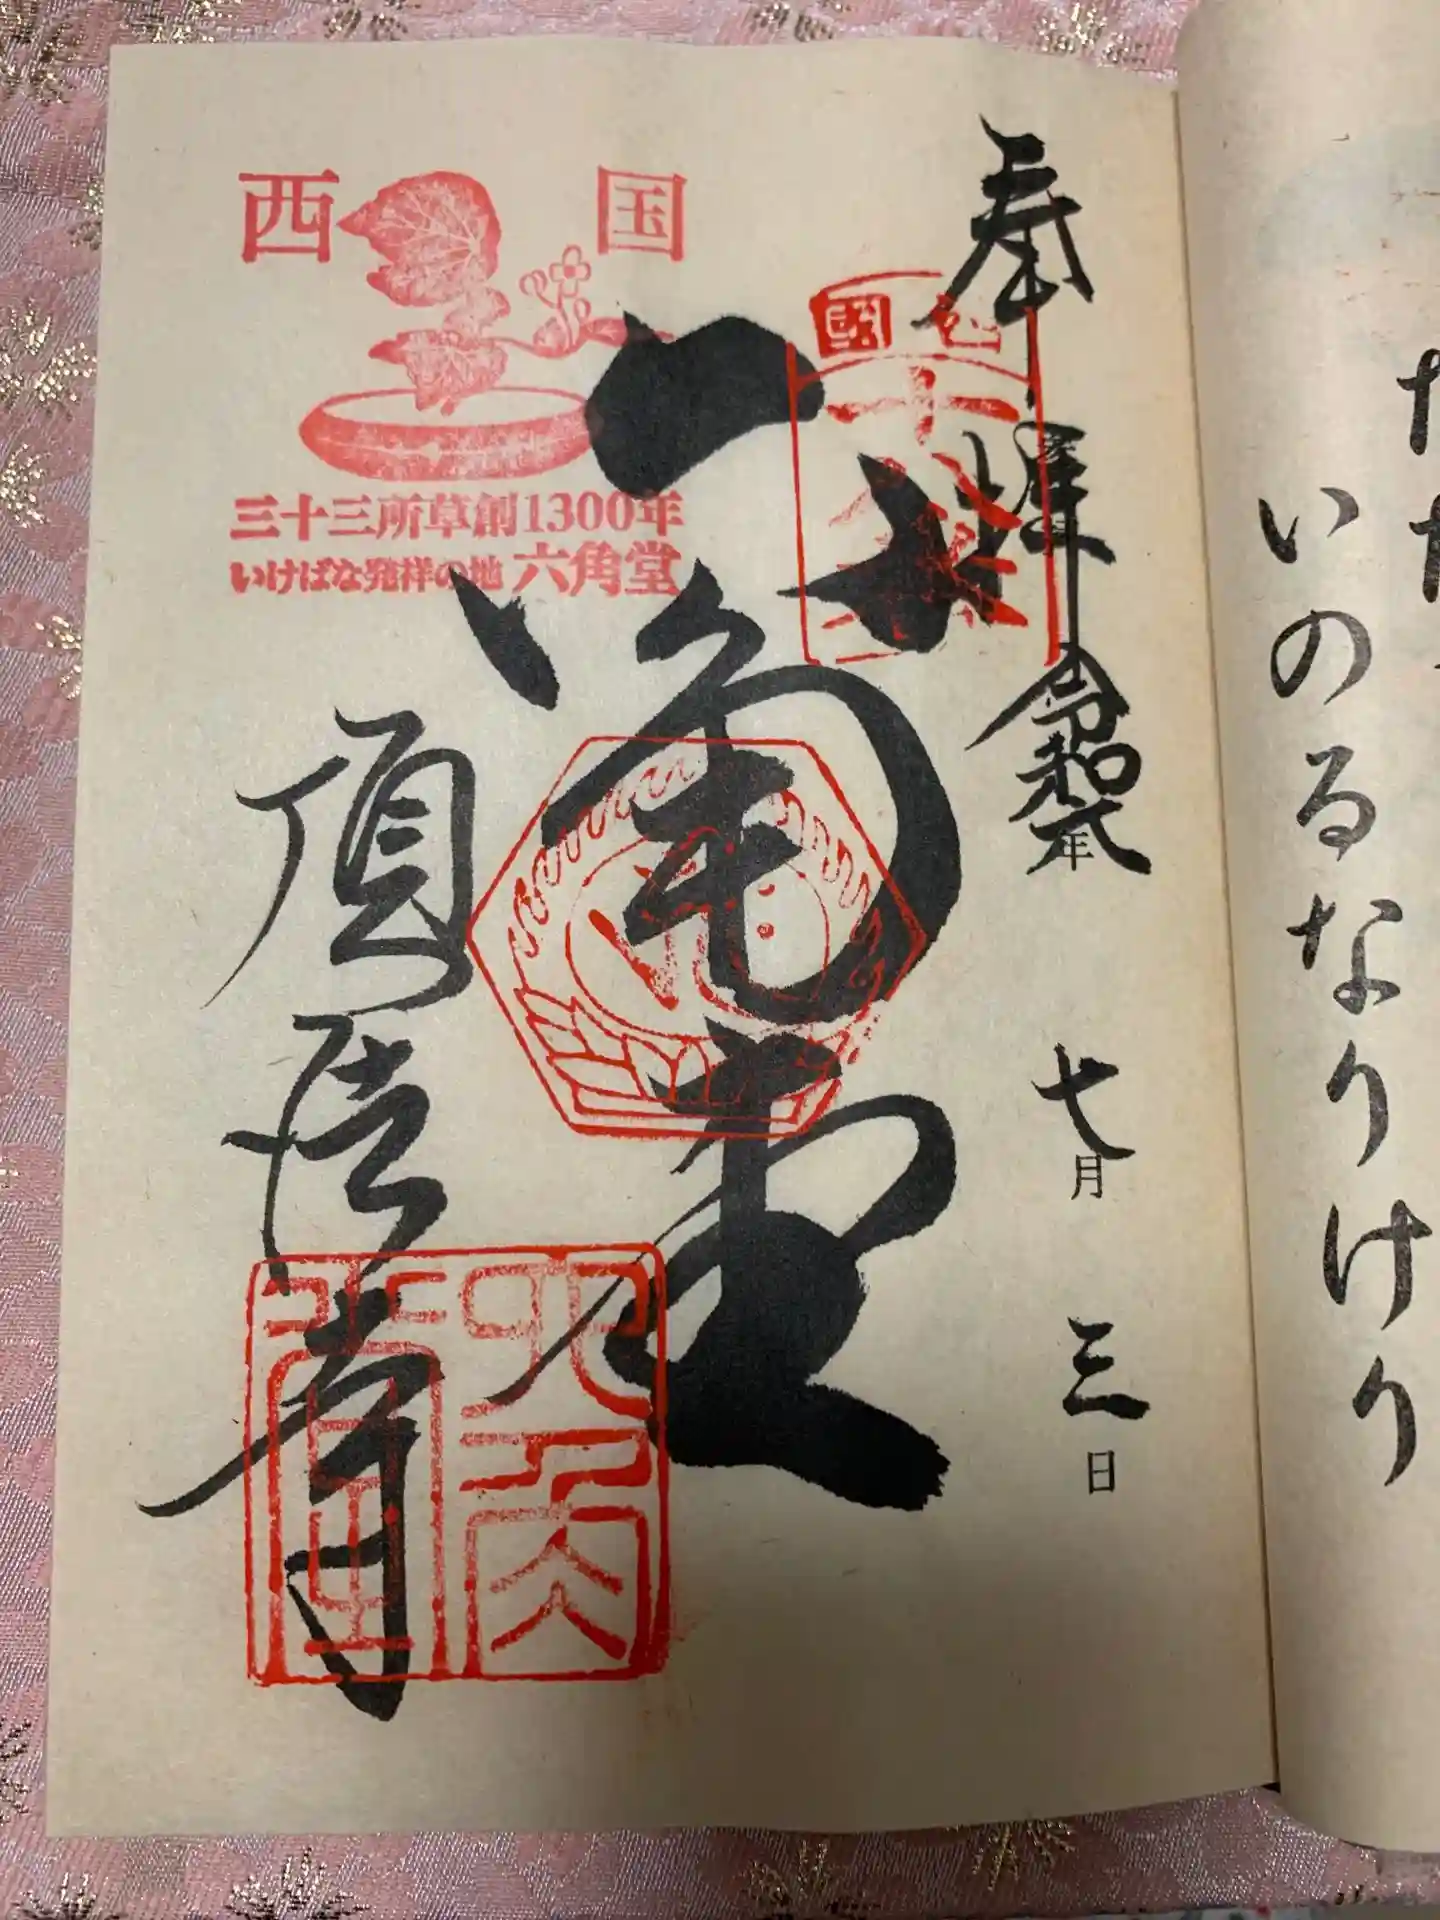 いのるなりけり
奉拝
令和元年
七月
三日
西国
十八番
六角堂
西 国
三十三所草創1300年
いけばな発祥の地 六角堂
頂法寺